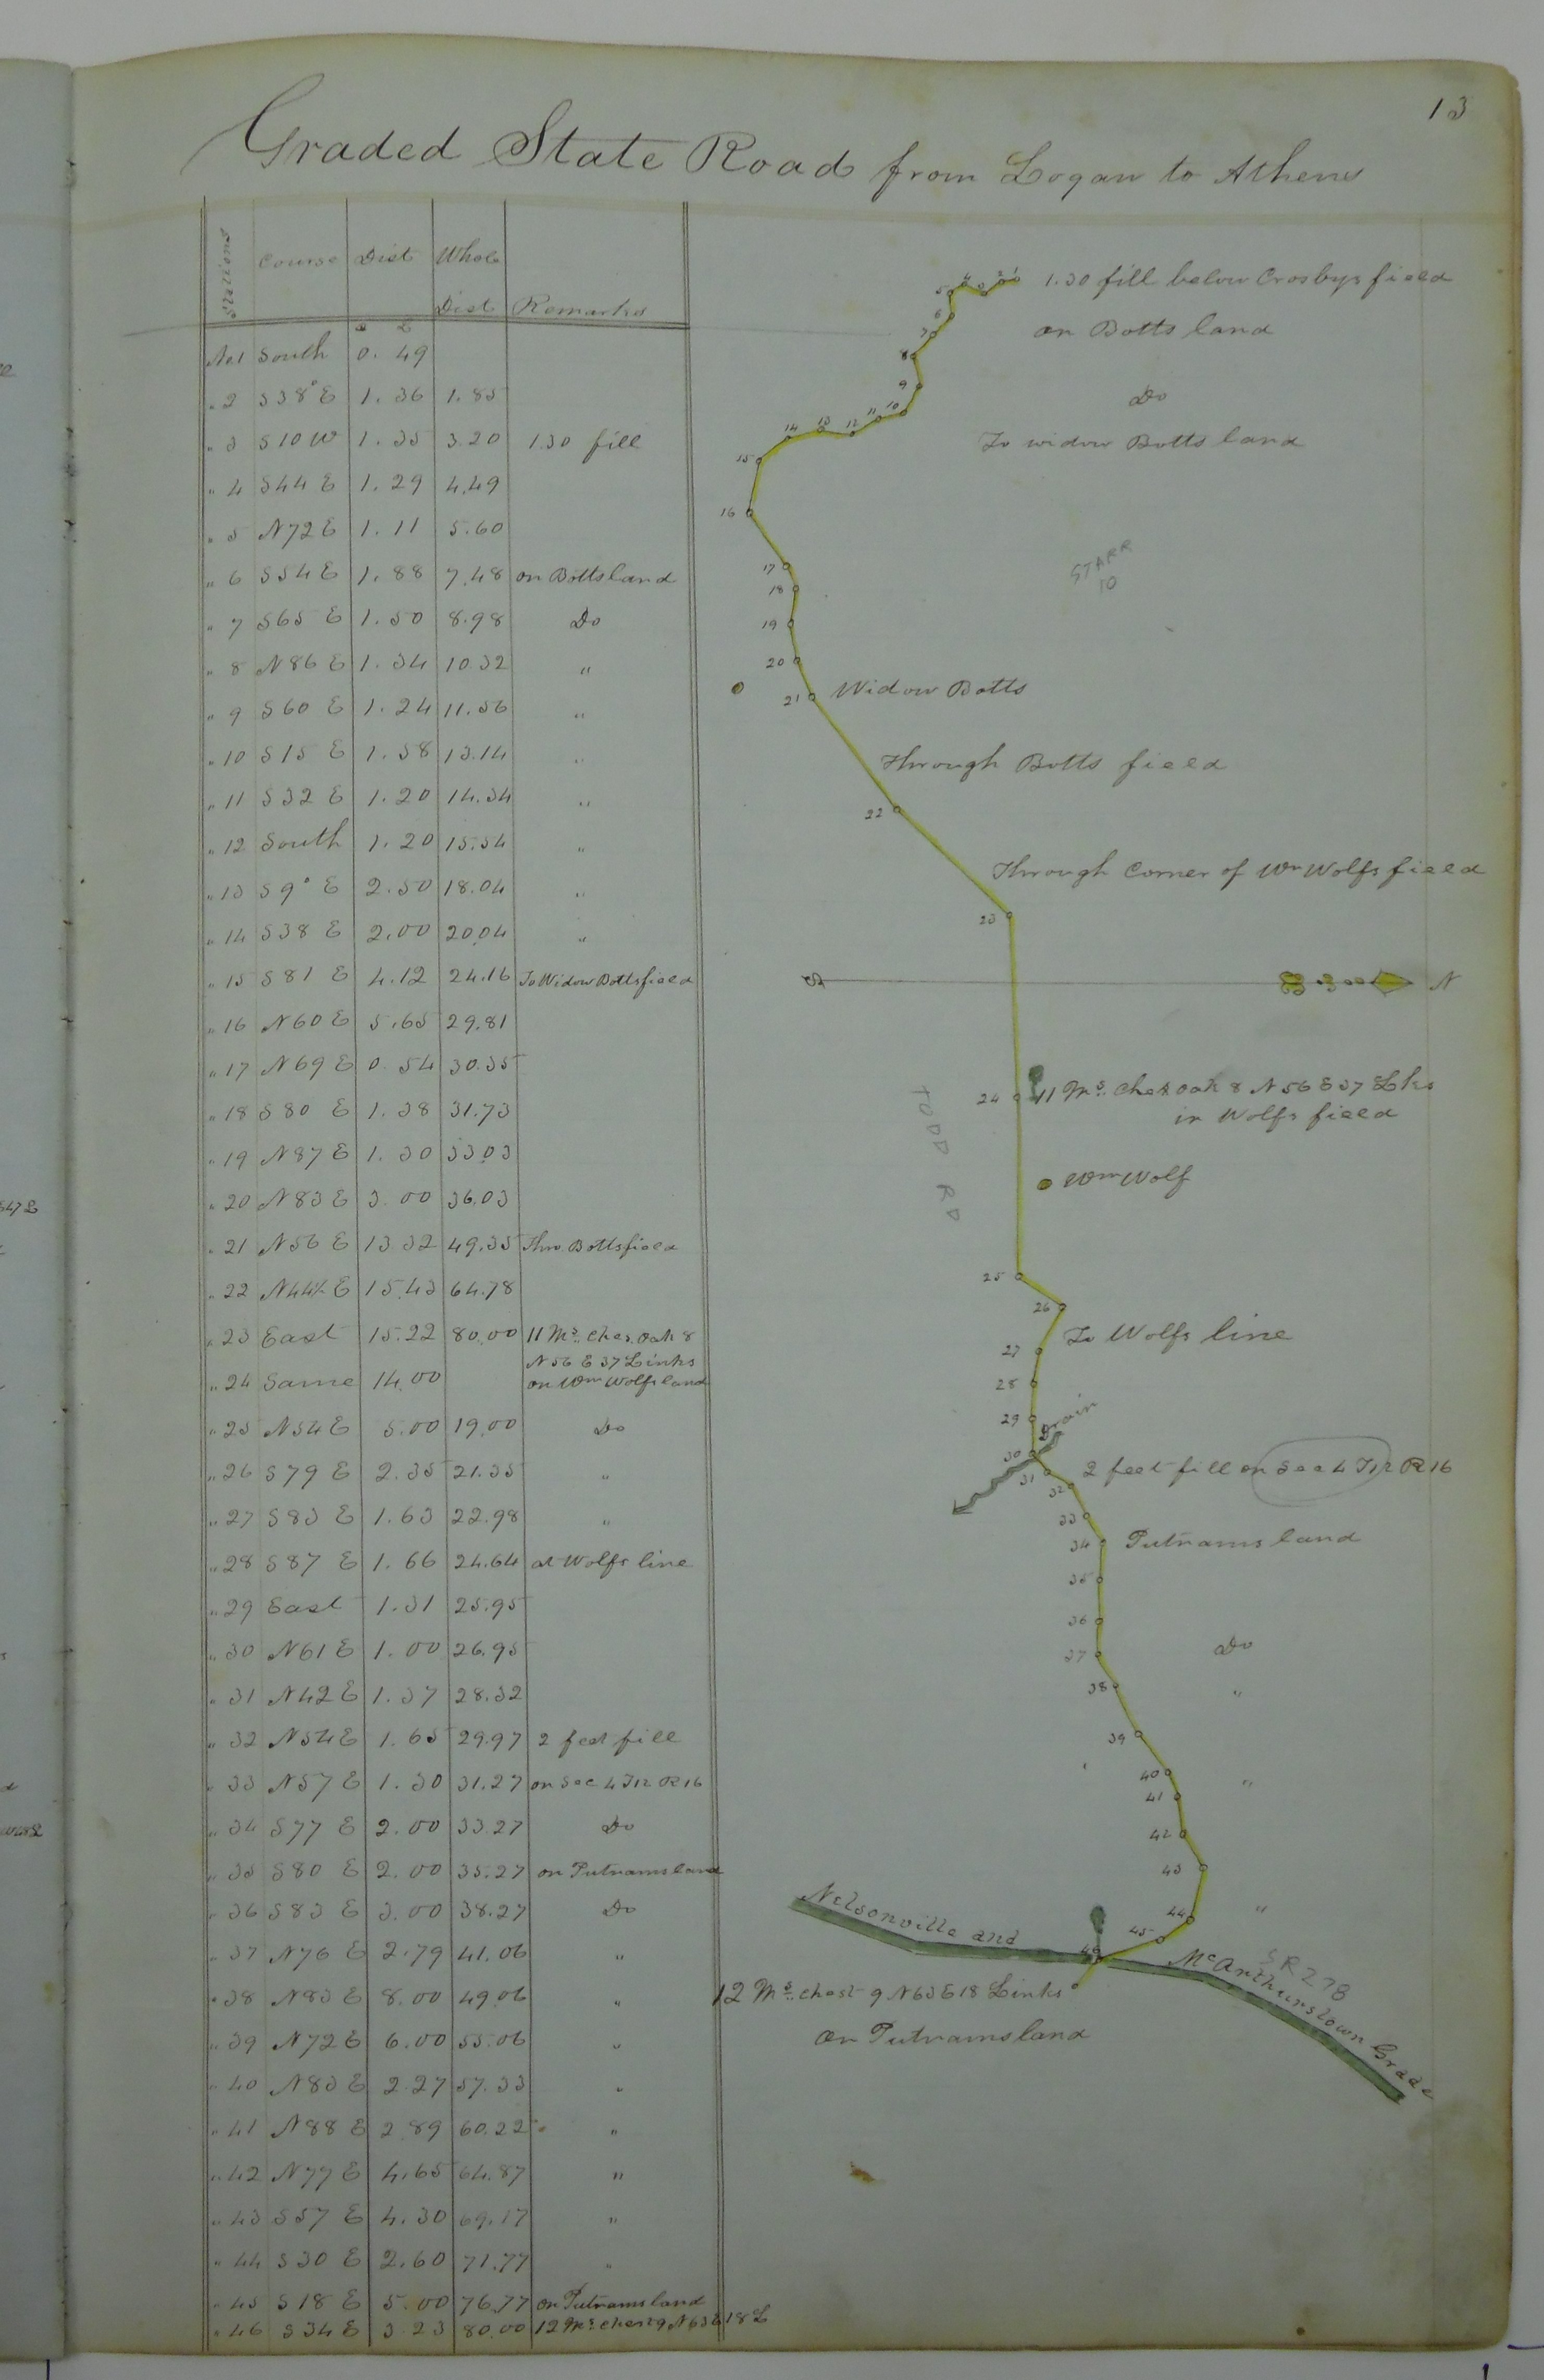 13
Graded State Road from Logan to Athens
Stations Course Dist Whole Dist Remarks
C L
No1 South 0.49
" 2 S38°E 1.36 1.85
" 3 S10W 1.35 3.20 1.30 fill
" 4 S44E 1.29 4.49
" 5 N72E 1.11 5.60
" 6 S54E 1.88 7.48 on Botts land
" 7 S65E 1.50 8.98 Do
" 8 N86E 1.34 10.32 "
" 9 S60E 1.24 11.56 "
" 10 S15E 1.58 13.14 "
" 11 S32E 1.20 14.34 "
" 12 South 1.20 15.54 "
" 13 S9°E 2.50 18.04 "
" 14 S38E 2.00 20.04 "
" 15 S81E 4.12 24.16 To Widow Botts field
" 16 N60E 5.65 29.81
" 17 N69E 0.54 30.35
" 18 S80E 1.38 31.73
" 19 N87E 1.30 33.03
" 20 N83E 3.00 36.03
" 21 N56E 13.32 49.35 Thro. Botts field
" 22 N44½E 15.43 64.78
" 23 East 15.22 80.00 11 Ms. Ches. Oak 8
N56E 37 Links
" 24 Same 14.00 on Wm Wolfs land
" 25 N54E 5.00 19.00 Do
" 26 S79E 2.35 21.35 "
" 27 S83E 1.63 22.98 "
" 28 S87E 1.66 24.64 at Wolfs line
" 29 East 1.31 25.95
" 30 N61E 1.00 26.95
" 31 N42E 1.37 28.32
" 32 N54E 1.65 29.97 2 feet fill
" 33 N57E 1.30 31.27 on Sec 4 T12 R16
" 34 S77E 2.00 33.27 Do
" 35 S80E 2.00 35.27 on Putnams land
" 36 S83E 3.00 38.27 Do
" 37 N76E 2.79 41.06 "
" 38 N83E 8.00 49.06 "
" 39 N72E 6.00 55.06 "
" 40 N83E 2.27 57.33 "
" 41 N88E 2.89 60.22 "
" 42 N77E 4.65 64.87 "
" 43 S57E 4.30 69.17 "
" 44 S30E 2.60 71.77 "
" 45 S18E 5.00 76.77 on Putnams land
" 46 S34E 3.23 80.00 12 Ms. Chest 9 N63E 18 L
1 2 3 4 1.30 fill below Crosbys field
5
6
7 on Botts land
8
9 Do
10 11 12 13 14 To widow Botts land
15
16
STARR
10
17
18
19
20
21 Widow Botts
Through Botts field
22
Through Corner of Wm Wolfs field
23
S N
24 11 Ms. Ches Oak 8 N56E 37 Lks
in Wolfs field
TODD RD
Wm Wolf
25
26
27 To Wolfs line
28
29 Drain
30
31 2 feet fill on Sec 4 T12 R16
32
33
34 Putnams land
35
36
37 Do
38 "
39
40 "
41
42
43
44 "
45
46
Nelsonville and McArthurstown Grade
SR278
12 Ms. Chest 9 N63E 18 Links
On Putnams land